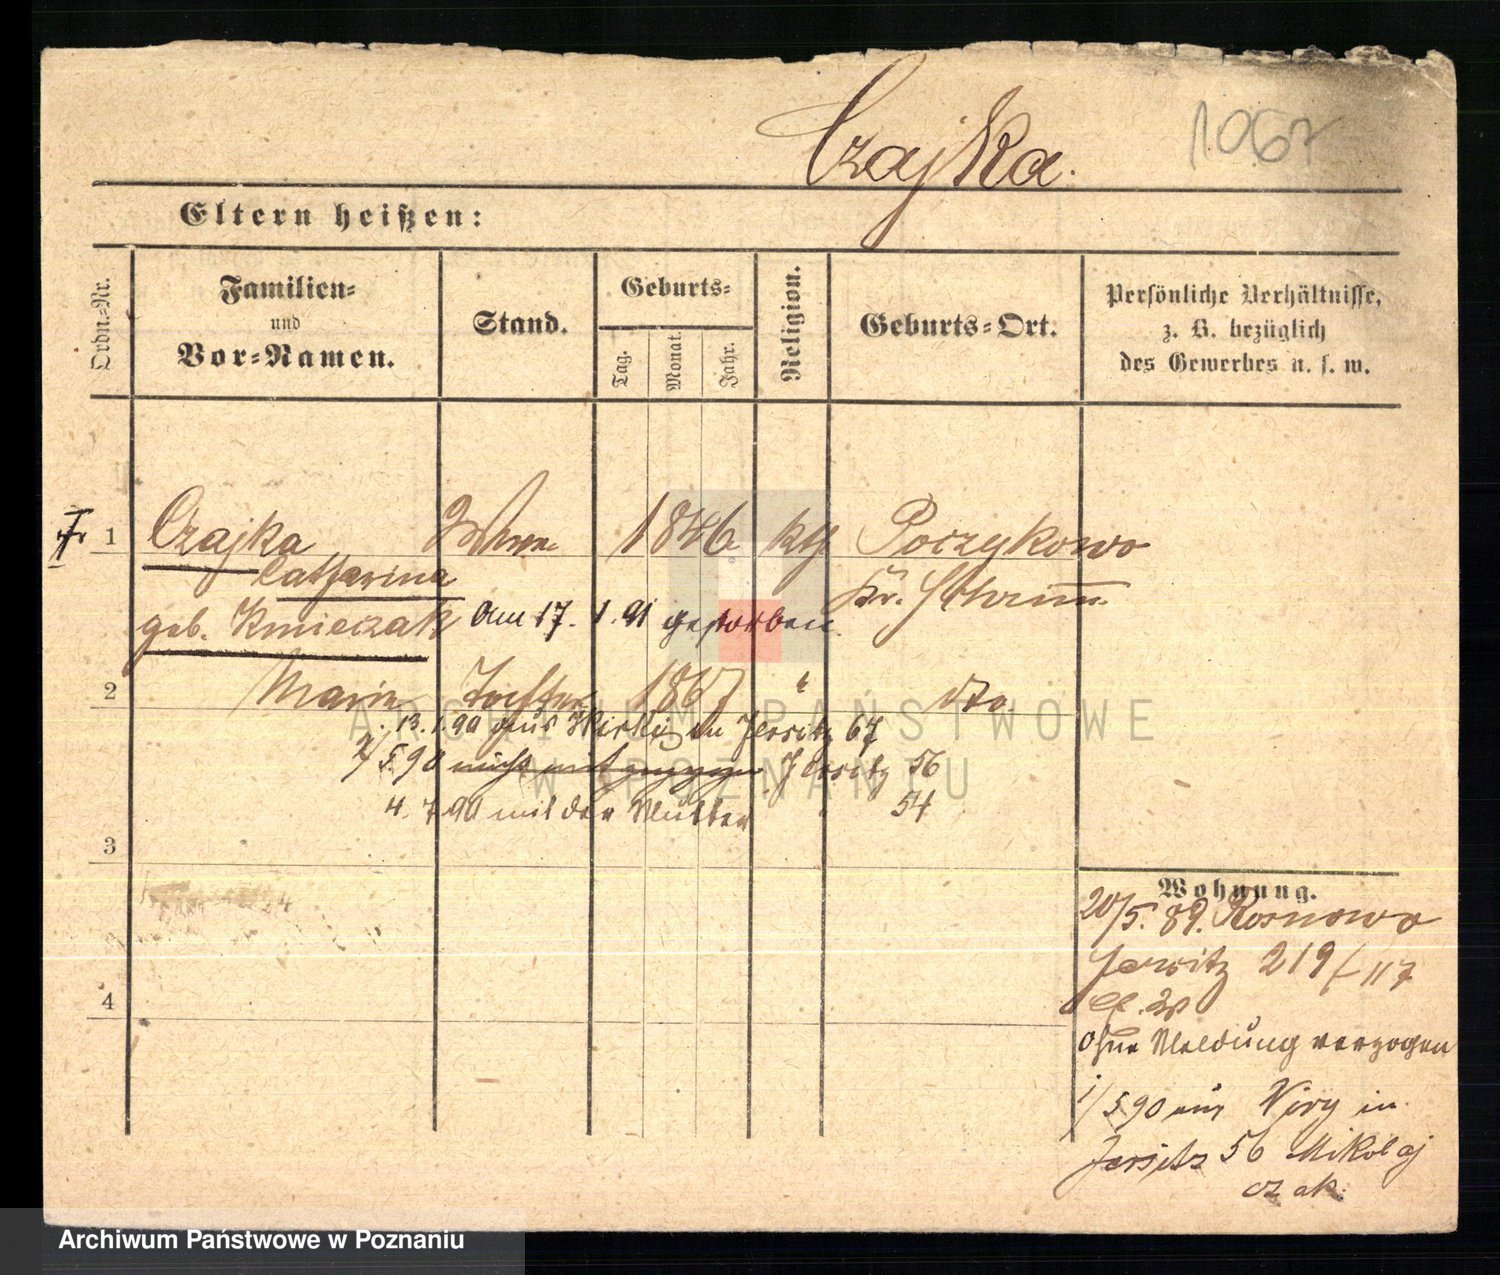 Czajka.
1067
Eltern heißen:
Ordn.-Nr.
Familien-
und
Vor-Namen.
Stand.
Geburts-
Tag.
Monat.
Jahr.
Religion.
Geburts-Ort.
Persönliche Verhältnisse,
z. B. bezüglich
des Gewerbes u. s. w.
1 Czajka 1846 kth
Catharina
geb. Kmieczak am 17. 1. 91 gestorben.
Kr. Schrimm.
2 Marie Tochter 1867 " dto.
13. 1. 90 aus in Jersitz 67
2/5 90 nicht mitgezogen Jersitz 56
4. 7 90 mit der Mutter " 54
3
4
Wohnung.
20/5. 89. Rosnowo
Jersitz 219/117
ohne Meldung verzogen
1/5 90 aus in
Jersitz 56 Mikolaj
czak.
ARCHIWUM PAŃSTWOWE
W POZNANIU
Archiwum Państwowe w Poznaniu